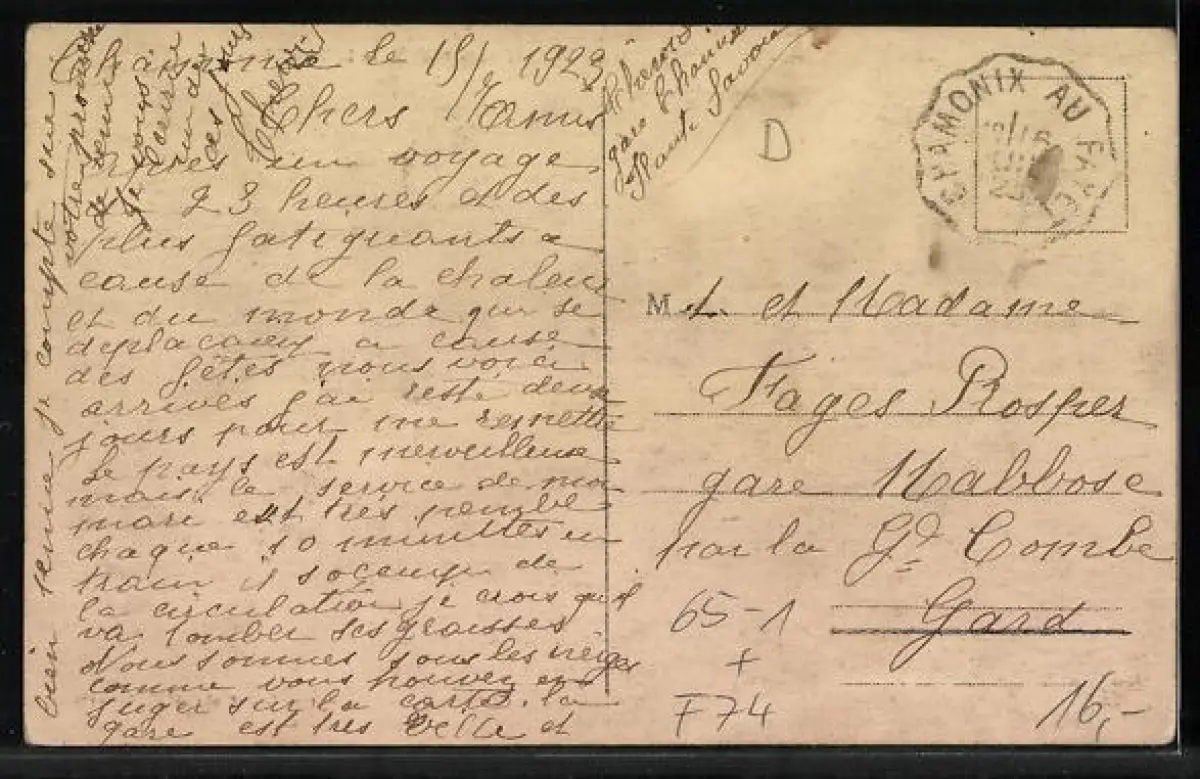 le 15/ 1923
Chers Amis
Après un voyage
23 heures et des
plus fatiguants a
cause de la chaleur
et du monde qui se
a cause
des fêtes nous voici
arrivés j'ai resté deux
jours pour me remettre
Le pays est merveilleux
mais le service de mon
mari est tres penible
chaque 10 minuttes un
train il soccupe de
la circulation je crois quil
va tomber ses graisses
Nous sommes sous les neiges
comme vous pouvez en
juger sur la carte. la
gare est tres belle et
bien tenue je compte sur
votre prochaine
gare
Haute Savoie
CHAMONIX AU FAYET
D
M. et Madame
Fages Prosper
gare Nabbose
par la Gd Combe
Gard
65-1
+
F74
16,-